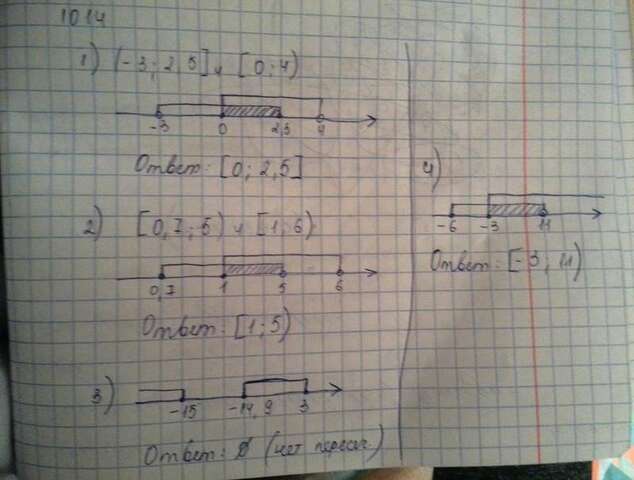 1014
1) (-3; 2,5] и [0; 4)
-3 0 2,5 4
Ответ: [0; 2,5]
2) [0,7; 5) и [1; 6)
0,7 1 5 6
Ответ: [1; 5)
3)
-15 -14,9 3
Ответ: Ø (нет пересеч.)
4)
-6 -3 11
Ответ: [-3; 11)